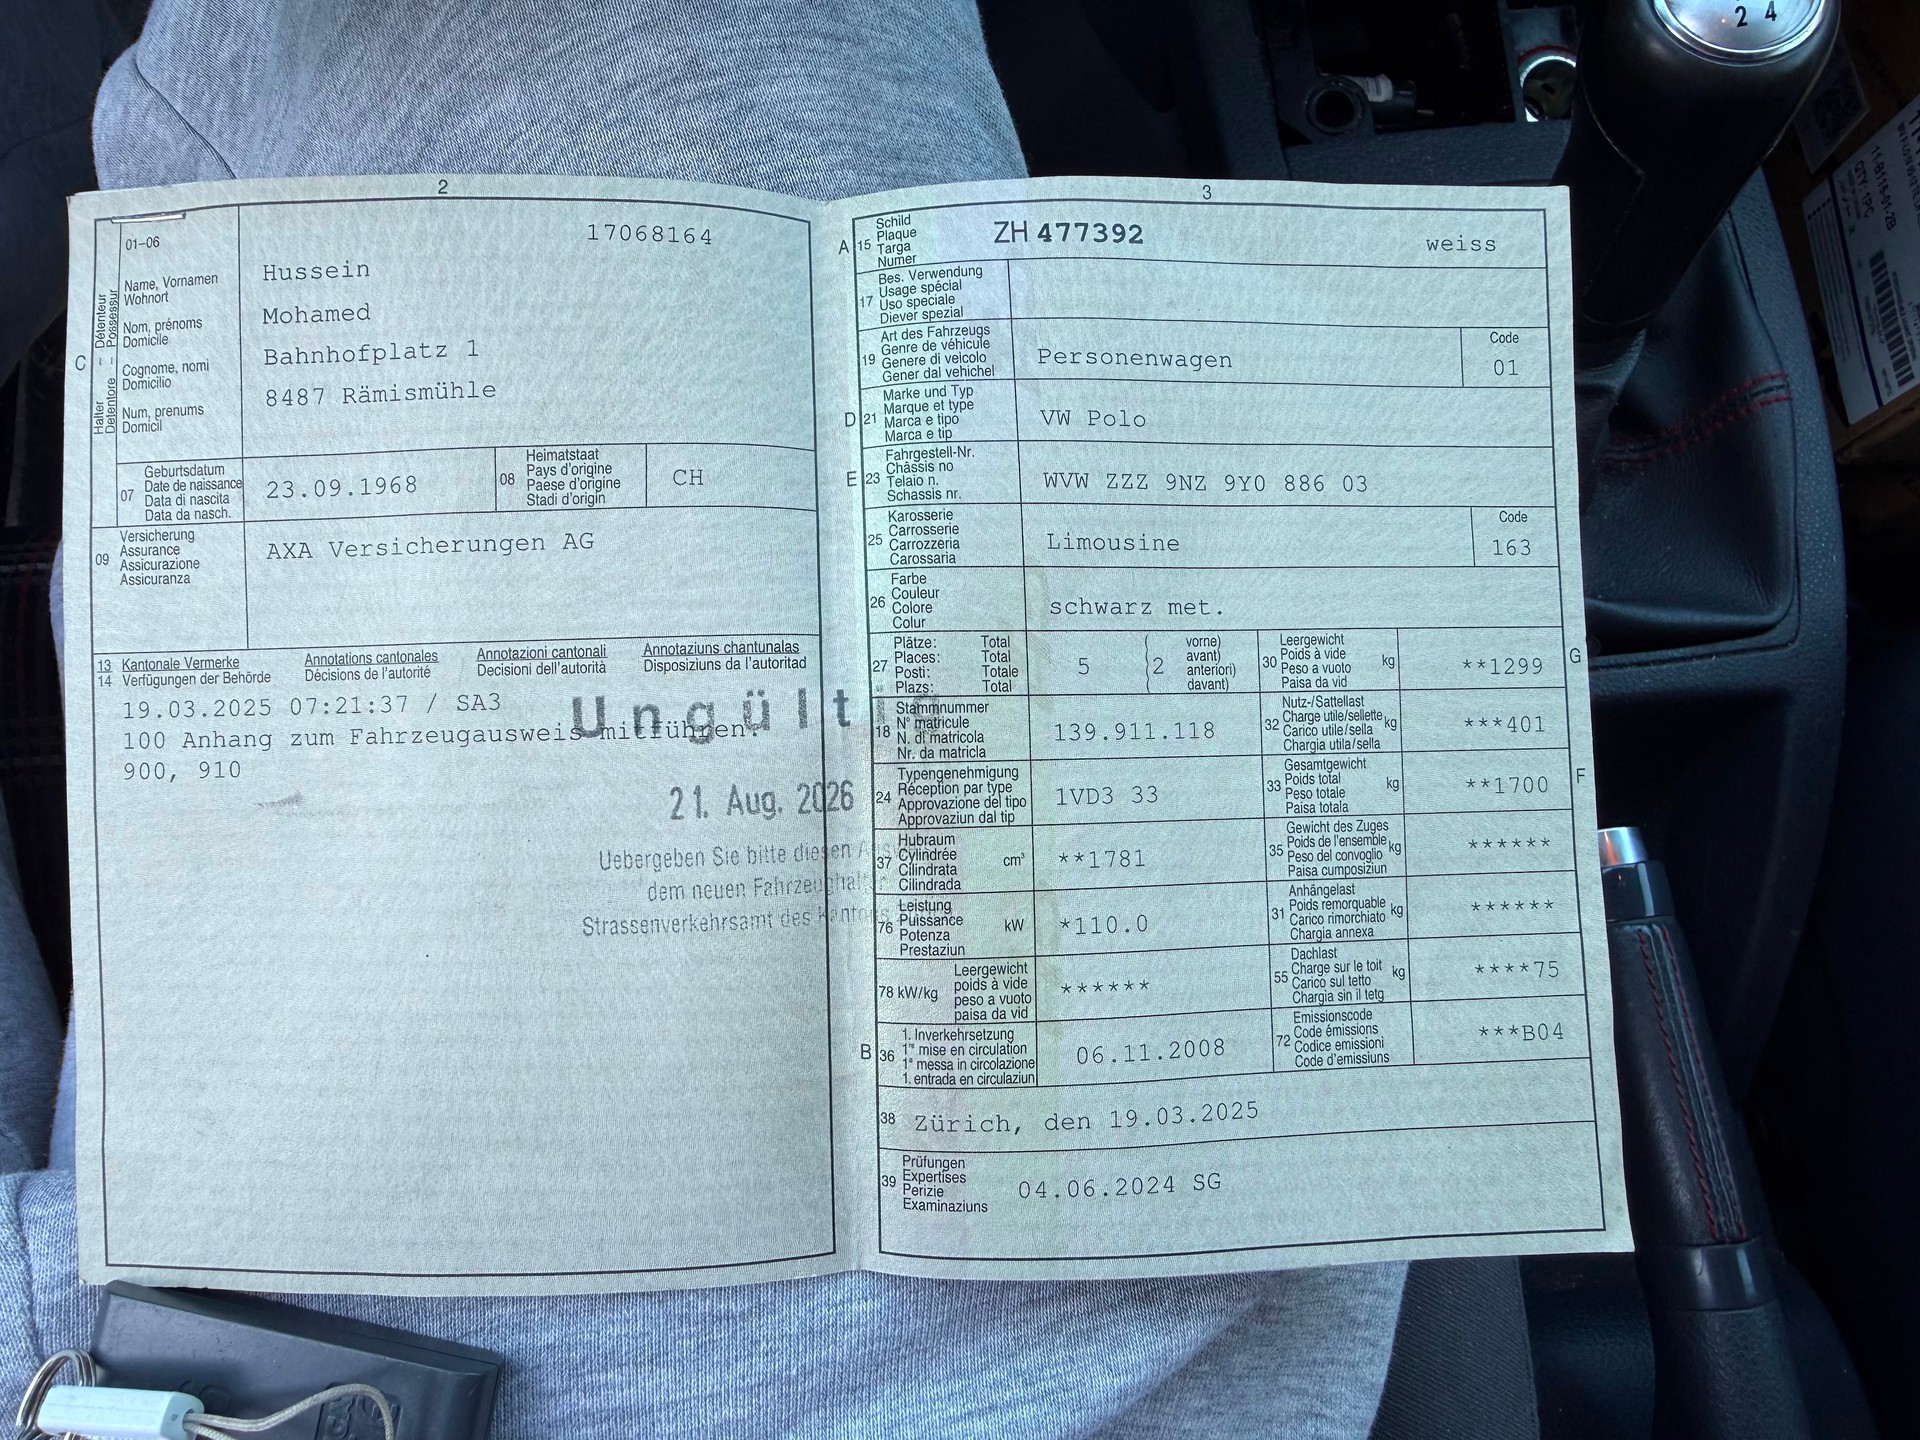 2
01-06
17068164
Name, Vornamen
Wohnort
Nom, prénoms
Domicile
Cognome, nomi
Domicilio
Num, prenums
Domicil
C
Halter – Détenteur
Detentore – Possessur
Hussein
Mohamed
Bahnhofplatz 1
8487 Rämismühle
07
Geburtsdatum
Date de naissance
Data di nascita
Data da nasch.
23.09.1968
08
Heimatstaat
Pays d'origine
Paese d'origine
Stadi d'origin
CH
09
Versicherung
Assurance
Assicurazione
Assicuranza
AXA Versicherungen AG
13 Kantonale Vermerke Annotations cantonales Annotazioni cantonali Annotaziuns chantunalas
14 Verfügungen der Behörde Décisions de l'autorité Decisioni dell'autorità Disposiziuns da l'autoritad
19.03.2025 07:21:37 / SA3
100 Anhang zum Fahrzeugausweis mitführen.
900, 910
Ungült
21. Aug. 2026
Uebergeben Sie bitte diesen
dem neuen Fahrzeughal
Strassenverkehrsamt des Kantons
3
A 15
Schild
Plaque
Targa
Numer
ZH 477392 weiss
17
Bes. Verwendung
Usage spécial
Uso speciale
Diever spezial
19
Art des Fahrzeugs
Genre de véhicule
Genere di veicolo
Gener dal vehichel
Personenwagen
Code
01
D 21
Marke und Typ
Marque et type
Marca e tipo
Marca e tip
VW Polo
E 23
Fahrgestell-Nr.
Châssis no
Telaio n.
Schassis nr.
WVW ZZZ 9NZ 9Y0 886 03
25
Karosserie
Carrosserie
Carrozzeria
Carossaria
Limousine
Code
163
26
Farbe
Couleur
Colore
Colur
schwarz met.
27
Plätze: Total
Places: Total
Posti: Totale
Plazs: Total
5
(2
vorne)
avant)
anteriori)
davant)
30
Leergewicht
Poids à vide
Peso a vuoto
Paisa da vid
kg
**1299
G
18
Stammnummer
N° matricule
N. di matricola
Nr. da matricla
139.911.118
32
Nutz-/Sattellast
Charge utile/sellette
Carico utile/sella
Chargia utila/sella
kg
***401
24
Typengenehmigung
Réception par type
Approvazione del tipo
Approvaziun dal tip
1VD3 33
33
Gesamtgewicht
Poids total
Peso totale
Paisa totala
kg
**1700
F
37
Hubraum
Cylindrée
Cilindrata
Cilindrada
cm³
**1781
35
Gewicht des Zuges
Poids de l'ensemble
Peso del convoglio
Paisa cumposiziun
kg
******
76
Leistung
Puissance
Potenza
Prestaziun
kW
*110.0
31
Anhängelast
Poids remorquable
Carico rimorchiato
Chargia annexa
kg
******
78 kW/kg
Leergewicht
poids à vide
peso a vuoto
paisa da vid
******
55
Dachlast
Charge sur le toit
Carico sul tetto
Chargia sin il tetg
kg
****75
B 36
1. Inverkehrsetzung
1re mise en circulation
1a messa in circolazione
1. entrada en circulaziun
06.11.2008
72
Emissionscode
Code émissions
Codice emissioni
Code d'emissiuns
***B04
38
Zürich, den 19.03.2025
39
Prüfungen
Expertises
Perizie
Examinaziuns
04.06.2024 SG
2 4
11-B116-01-2B
QTY: 1PC